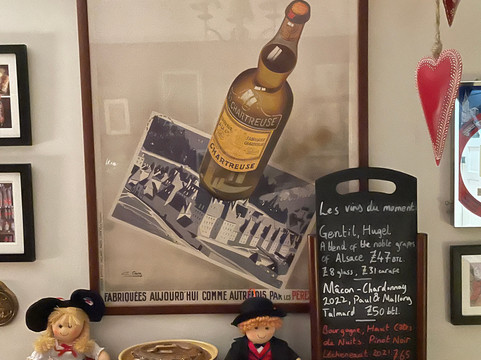 CHARTREUSE
CHARTREUSE
FABRIQUÉES AUJOURD'HUI COMME AUTREFOIS PAR LES PÈRES
Les vins du moment
Gentil, Hugel
A blend of the noble grapes
of Alsace £47 btl
£8 glass, £31 carafe
Mâcon-Chardonnay
2022, Paul & Mallory
Talmard £50 btl.
Bourgogne, Haut Côtes
de Nuits, Pinot Noir
Lécheneaut 2021 £65